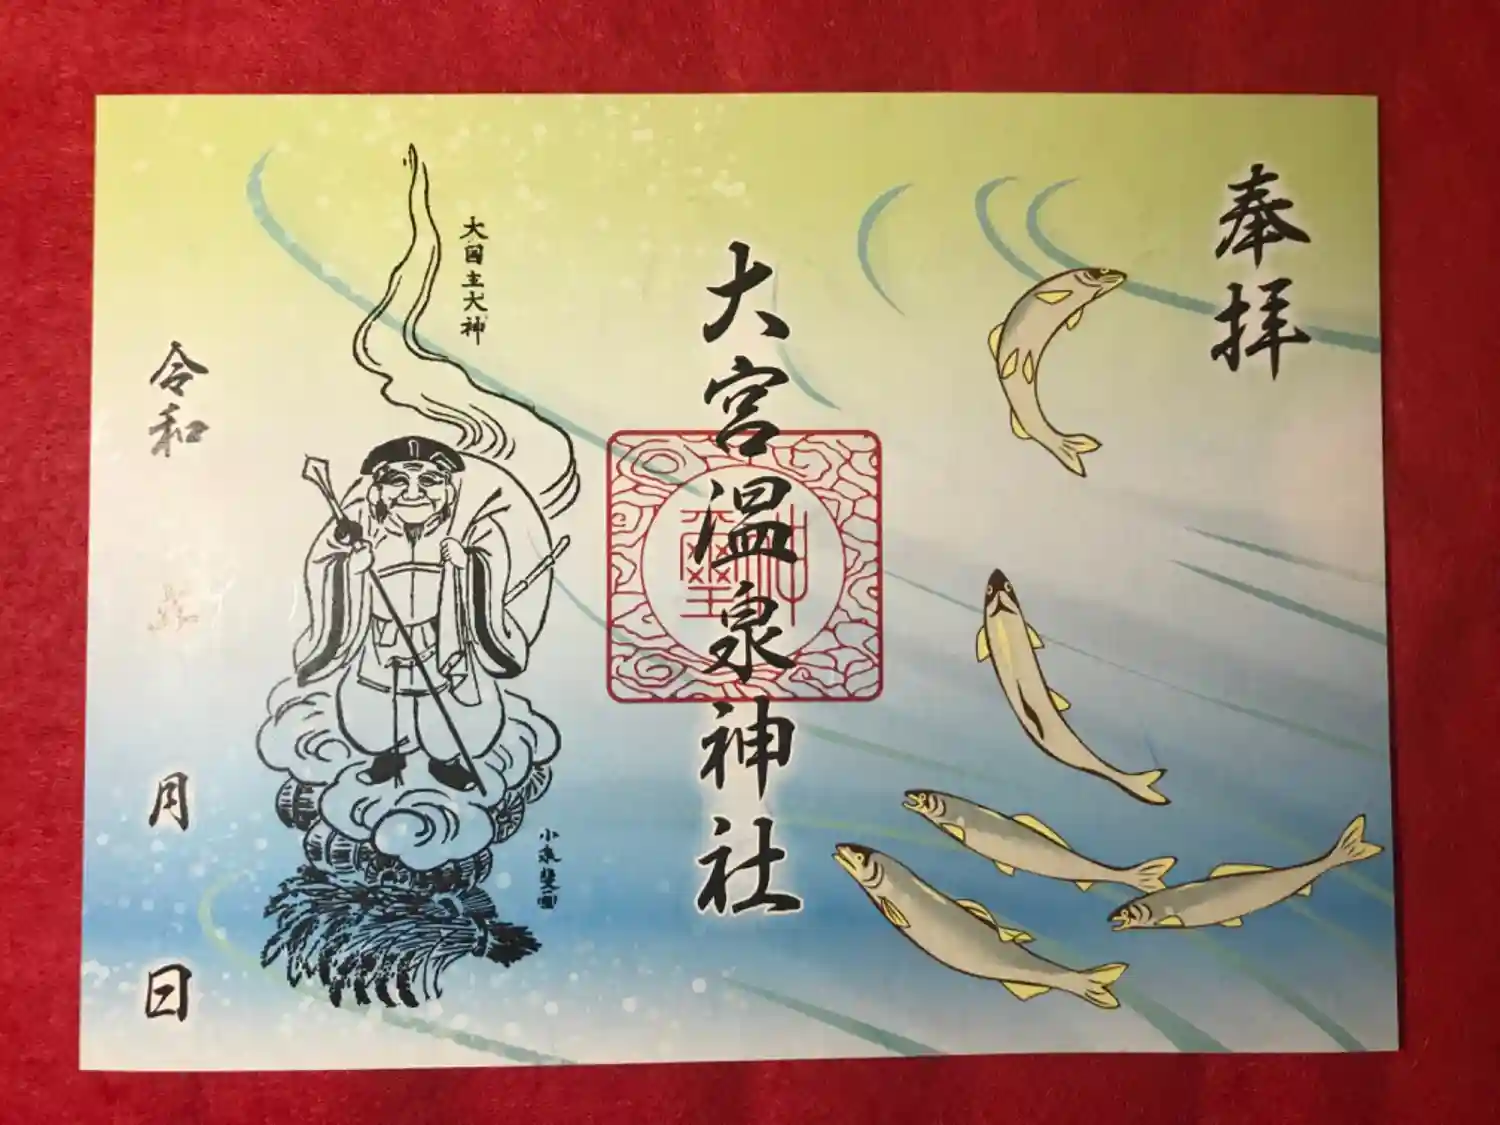 奉拝
大宮温泉神社
大国主大神
小泉斐圖
令和
月
日